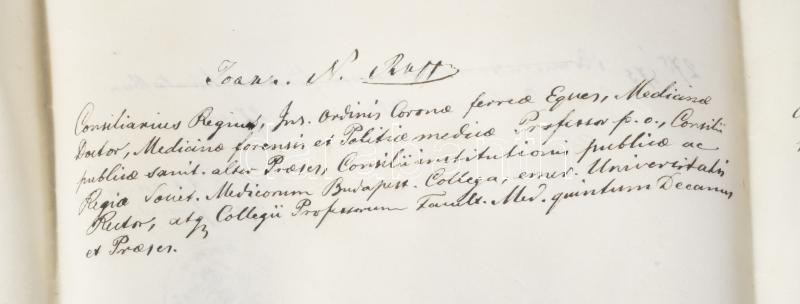 Joan. N. Rupp
Consiliarius Regius, Ins. Ordinis Coronæ ferreæ Eques, Medicinæ
Doctor, Medicinæ forensis et Politiæ medicæ Professor p. o., Consilii
publicæ sanit. alter Præses, Consilii institutioni publicæ ac
Regiæ Societ. Medicorum Budapest. Collega, emer. Universitatis
Rector, atq Collegii Professorum Facult. Med. quintum Decanus
et Præses.